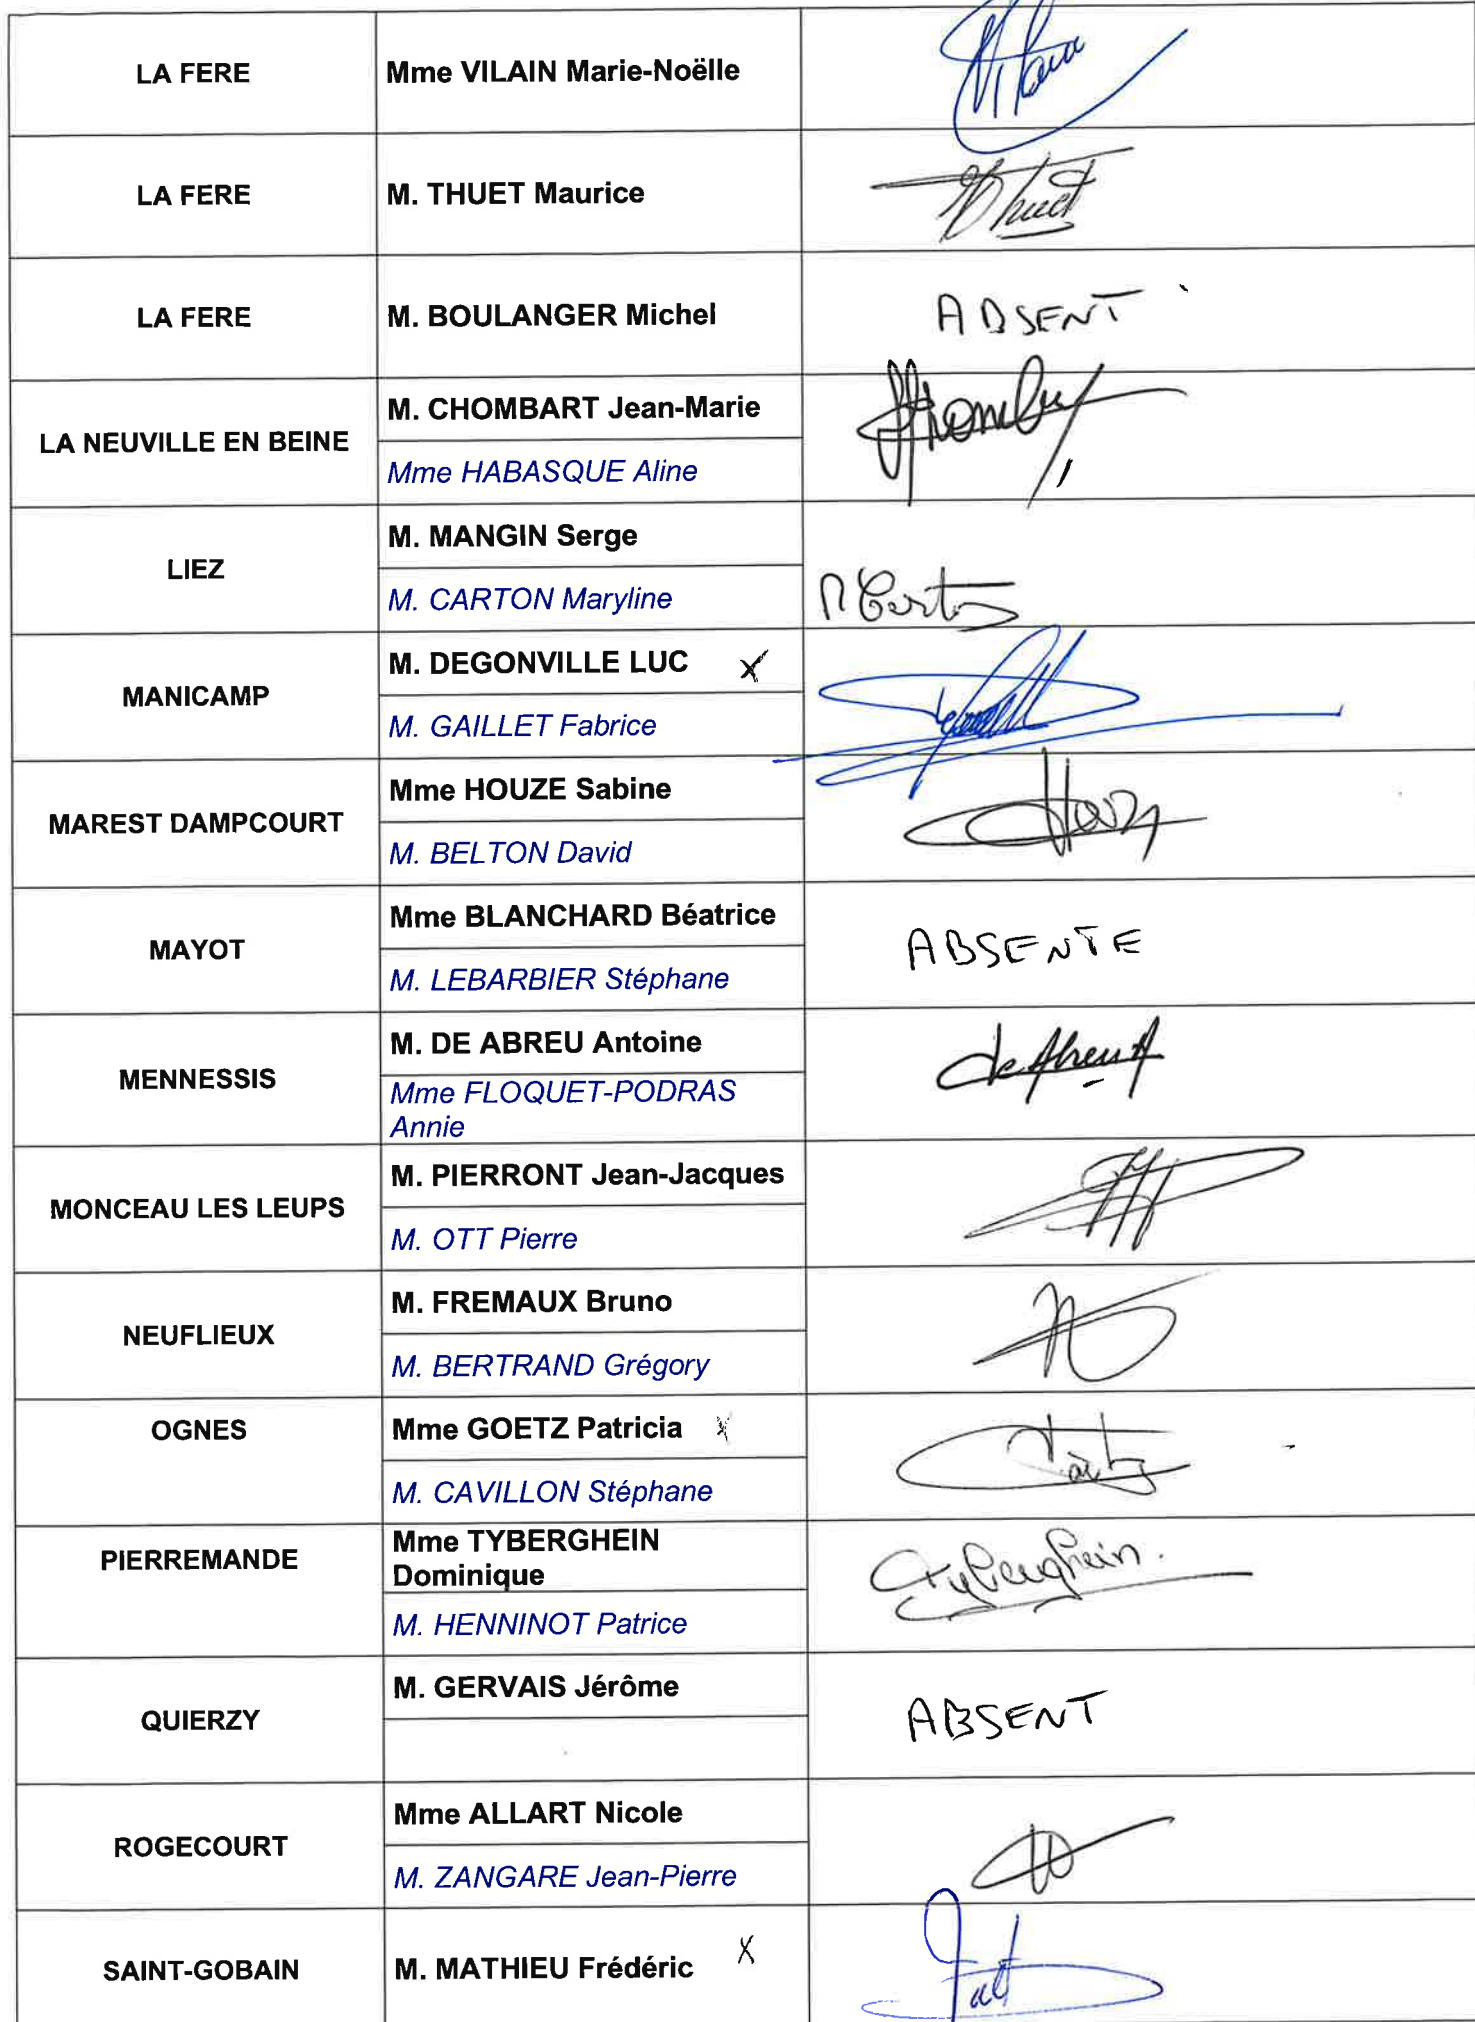 LA FERE
Mme VILAIN Marie-Noëlle
LA FERE
M. THUET Maurice
Thuet
LA FERE
M. BOULANGER Michel
ABSENT
LA NEUVILLE EN BEINE
M. CHOMBART Jean-Marie
Mme HABASQUE Aline
LIEZ
M. MANGIN Serge
M. CARTON Maryline
MANICAMP
M. DEGONVILLE LUC X
M. GAILLET Fabrice
MAREST DAMPCOURT
Mme HOUZE Sabine
M. BELTON David
MAYOT
Mme BLANCHARD Béatrice
M. LEBARBIER Stéphane
ABSENTE
MENNESSIS
M. DE ABREU Antoine
Mme FLOQUET-PODRAS
Annie
de Abreu A
MONCEAU LES LEUPS
M. PIERRONT Jean-Jacques
M. OTT Pierre
NEUFLIEUX
M. FREMAUX Bruno
M. BERTRAND Grégory
OGNES
Mme GOETZ Patricia X
M. CAVILLON Stéphane
PIERREMANDE
Mme TYBERGHEIN
Dominique
M. HENNINOT Patrice
Tyberghein.
QUIERZY
M. GERVAIS Jérôme
ABSENT
ROGECOURT
Mme ALLART Nicole
M. ZANGARE Jean-Pierre
SAINT-GOBAIN
M. MATHIEU Frédéric X